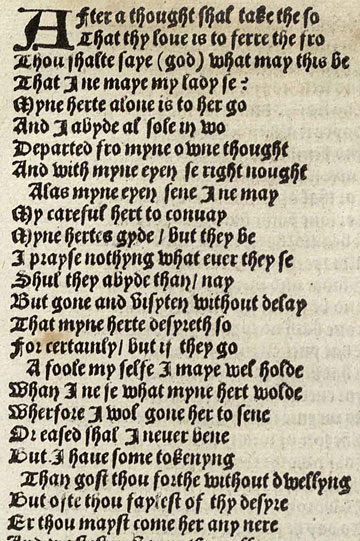 After a thought shal take the so
That thy loue is to ferre the fro
Thou shalte saye (god) what may this be
That I ne maye my lady se?
Myne herte alone is to her go
And I abyde al sole in wo
Departed fro myne owne thought
And with myne eyen se right nought
Alas myne eyen sene I ne may
My careful hert to conuay
Myne hertes gyde / but they be
I prayse nothyng what euer they se
Shul they abyde than / nay
But gone and visyten without delay
That myne herte desyreth so
For certainly / but if they go
A foole my selfe I maye wel holde
Whan I ne se what myne hert wolde
Wherfore I wol gone her to sene
Or eased shal I neuer bene
But I haue some tokenyng
Than gost thou forthe without dwellyng
But ofte thou faylest of thy desyre
Er thou mayst come her any nere